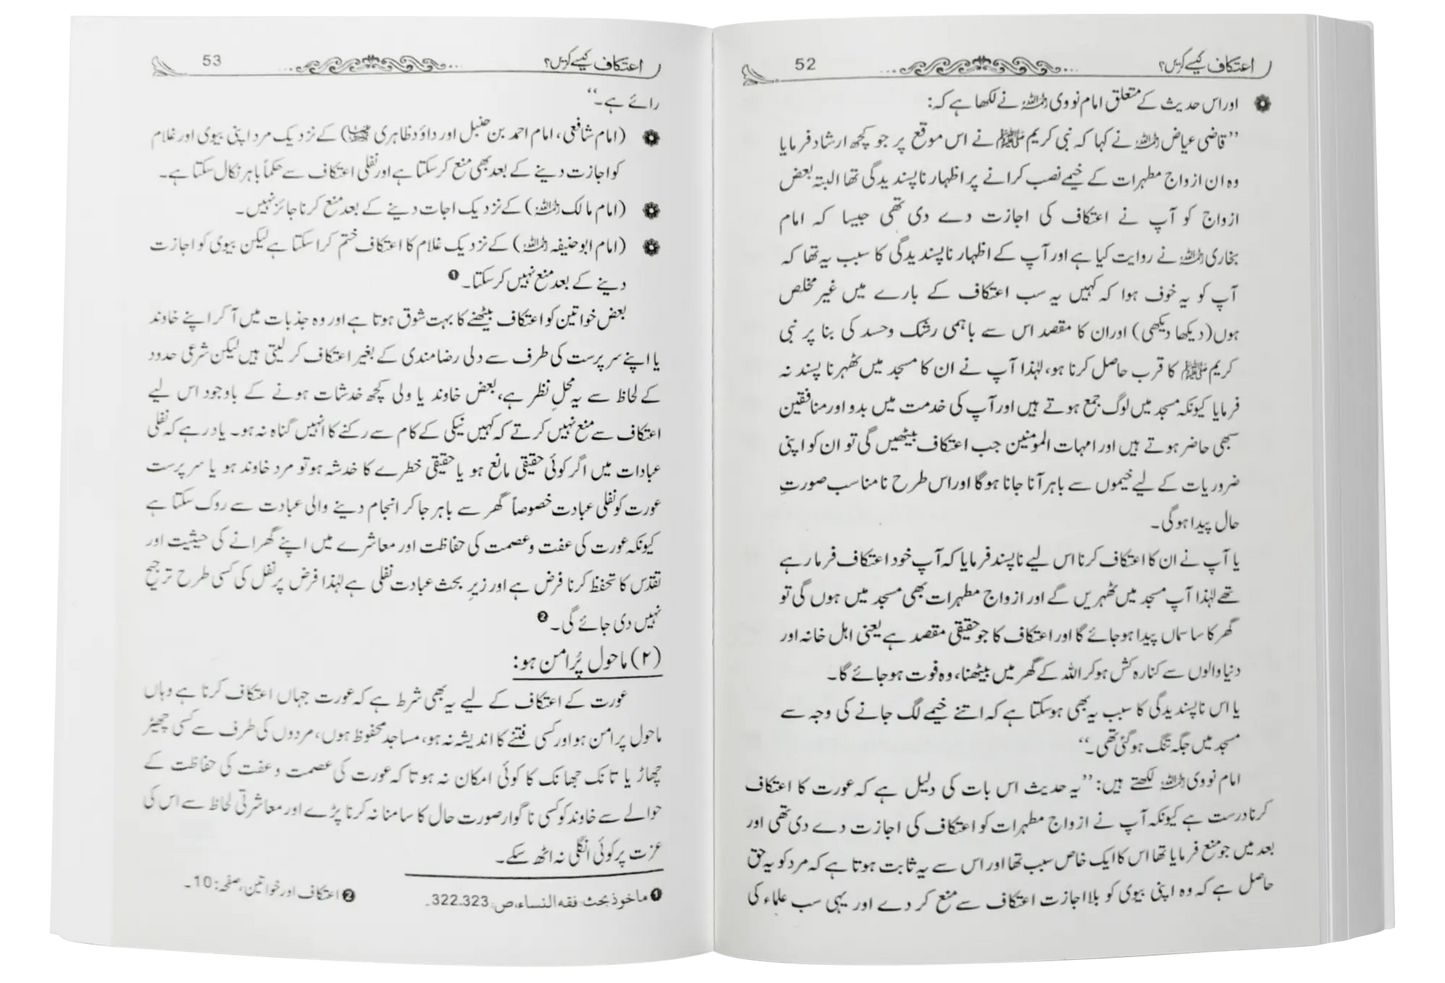 اعتکاف کیسے کریں؟ 52
اور اس حدیث کے متعلق امام نووی رحمہ اللہ نے لکھا ہے کہ:
”قاضی عیاض رحمہ اللہ نے کہا کہ نبی کریم ﷺ نے اس موقع پر جو کچھ ارشاد فرمایا
وہ ان ازواج مطہرات کے خیمے نصب کرانے پر اظہار ناپسندیدگی تھا البتہ بعض
ازواج کو آپ نے اعتکاف کی اجازت دے دی تھی جیسا کہ امام
بخاری رحمہ اللہ نے روایت کیا ہے اور آپ کے اظہار ناپسندیدگی کا سبب یہ تھا کہ
آپ کو یہ خوف ہوا کہ کہیں یہ سب اعتکاف کے بارے میں غیر مخلص
ہوں (دیکھا دیکھی) اور ان کا مقصد اس سے باہمی رشک وحسد کی بنا پر نبی
کریم ﷺ کا قرب حاصل کرنا ہو، لہٰذا آپ نے ان کا مسجد میں ٹھہرنا پسند نہ
فرمایا کیونکہ مسجد میں لوگ جمع ہوتے ہیں اور آپ کی خدمت میں بدو اور منافقین
سبھی حاضر ہوتے ہیں اور امہات المومنین جب اعتکاف بیٹھیں گی تو ان کو اپنی
ضروریات کے لیے خیموں سے باہر آنا جانا ہوگا اور اس طرح نامناسب صورتِ
حال پیدا ہوگی۔
یا آپ نے ان کا اعتکاف کرنا اس لیے ناپسند فرمایا کہ آپ خود اعتکاف فرما رہے
تھے لہٰذا آپ مسجد میں ٹھہریں گے اور ازواج مطہرات بھی مسجد میں ہوں گی تو
گھر کا سا سماں پیدا ہو جائے گا اور اعتکاف کا جو حقیقی مقصد ہے یعنی اہل خانہ اور
دنیا والوں سے کنارہ کش ہوکر اللہ کے گھر میں بیٹھنا، وہ فوت ہوجائے گا۔
یا اس ناپسندیدگی کا سبب یہ بھی ہوسکتا ہے کہ اتنے خیمے لگ جانے کی وجہ سے
مسجد میں جگہ تنگ ہوگئی تھی۔“
امام نووی رحمہ اللہ لکھتے ہیں: ”یہ حدیث اس بات کی دلیل ہے کہ عورت کا اعتکاف
کرنا درست ہے کیونکہ آپ نے ازواج مطہرات کو اعتکاف کی اجازت دے دی تھی اور
بعد میں جو منع فرمایا تھا اس کا ایک خاص سبب تھا اور اس سے یہ ثابت ہوتا ہے کہ مرد کو یہ حق
حاصل ہے کہ وہ اپنی بیوی کو بلا اجازت اعتکاف سے منع کر دے اور یہی سب علماء کی
اعتکاف کیسے کریں؟ 53
رائے ہے۔“
(امام شافعی، امام احمد بن حنبل اور داؤد ظاہری رحمہم اللہ) کے نزدیک مرد اپنی بیوی اور غلام
کو اجازت دینے کے بعد بھی منع کرسکتا ہے اور نفلی اعتکاف سے حکماً باہر نکال سکتا ہے۔
(امام مالک رحمہ اللہ) کے نزدیک اجات دینے کے بعد منع کرنا جائز نہیں۔
(امام ابوحنیفہ رحمہ اللہ) کے نزدیک غلام کا اعتکاف ختم کرا سکتا ہے لیکن بیوی کو اجازت
دینے کے بعد منع نہیں کرسکتا۔ ❶
بعض خواتین کو اعتکاف بیٹھنے کا بہت شوق ہوتا ہے اور وہ جذبات میں آکر اپنے خاوند
یا اپنے سرپرست کی طرف سے دلی رضامندی کے بغیر اعتکاف کرلیتی ہیں لیکن شرعی حدود
کے لحاظ سے یہ محلِ نظر ہے، بعض خاوند یا ولی کچھ خدشات ہونے کے باوجود اس لیے
اعتکاف سے منع نہیں کرتے کہ کہیں نیکی کے کام سے رکنے کا انہیں گناہ نہ ہو۔ یاد رہے کہ نفلی
عبادات میں اگر کوئی حقیقی مانع ہو یا حقیقی خطرے کا خدشہ ہو تو مرد خاوند ہو یا سرپرست
عورت کو نفلی عبادت خصوصاً گھر سے باہر جاکر انجام دینے والی عبادت سے روک سکتا ہے
کیونکہ عورت کی عفت وعصمت کی حفاظت اور معاشرے میں اپنے گھرانے کی حیثیت اور
تقدّس کا تحفظ کرنا فرض ہے اور زیرِ بحث عبادت نفلی ہے لہٰذا فرض پر نفل کی کسی طرح ترجیح
نہیں دی جائے گی۔ ❷
(۲) ماحول پُرامن ہو:
عورت کے اعتکاف کے لیے یہ بھی شرط ہے کہ عورت جہاں اعتکاف کرنا ہے وہاں
ماحول پرامن ہو اور کسی فتنے کا اندیشہ نہ ہو، مساجد محفوظ ہوں، مردوں کی طرف سے کسی چھیڑ
چھاڑ یا تانک جھانک کا کوئی امکان نہ ہو تاکہ عورت کی عصمت وعفت کی حفاظت کے
حوالے سے خاوند کو کسی ناگوار صورت حال کا سامنا نہ کرنا پڑے اور معاشرتی لحاظ سے اس کی
عزت پر کوئی انگلی نہ اٹھ سکے۔
❶ ماخوذ بحث: فقہ النساء، ص: 322,323۔ ❷ اعتکاف اور خواتین، صفحہ: 10۔